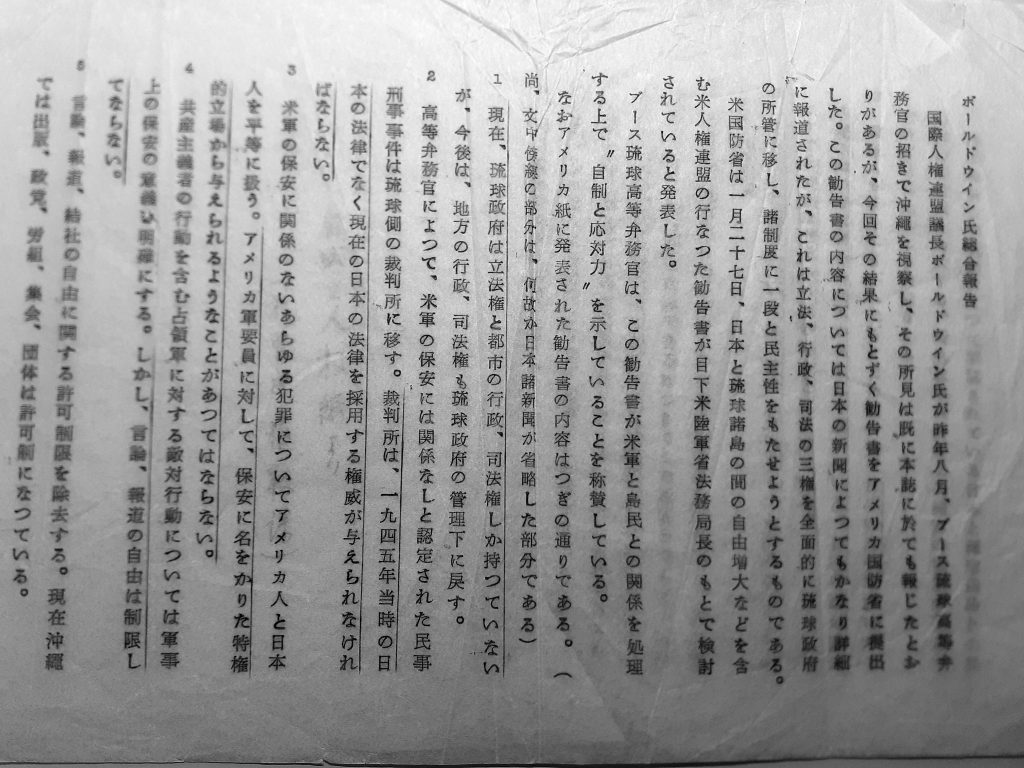 ボールドウイン氏総合報告
国際人権連盟議長ボールドウイン氏が昨年八月、ブース琉球高等弁
務官の招きで沖縄を視察し、その所見は既に本誌に於ても報じたとお
りがあるが、今回その結果にもとずく勧告書をアメリカ国防省に提出
した。この勧告書の内容については日本の新聞によつてもかなり詳細
に報道されたが、これは立法、行政、司法の三権を全面的に琉球政府
の所管に移し、諸制度に一段と民主性をもたせようとするものである。
米国防省は一月二十七日、日本と琉球諸島の間の自由増大などを含
む米人権連盟の行なつた勧告書が目下米陸軍省法務局長のもとで検討
されていると発表した。
ブース琉球高等弁務官は、この勧告書が米軍と島民との関係を処理
する上で〝自制と応対力〟を示していることを称賛している。
なおアメリカ紙に発表された勧告書の内容はつぎの通りである。(
尚、文中傍線の部分は、何故か日本諸新聞が省略した部分である)
1 現在、琉球政府は立法権と都市の行政、司法権しか持つていない
が、今後は、地方の行政、司法権も琉球政府の管理下に戻す。
2 高等弁務官によつて、米軍の保安には関係なしと認定された民事
刑事事件は琉球側の裁判所に移す。裁判所は、一九四五年当時の日
本の法律でなく現在の日本の法律を採用する権威が与えられなけれ
ばならない。
3 米軍の保安に関係のないあらゆる犯罪についてアメリカ人と日本
人を平等に扱う。アメリカ軍要員に対して、保安に名をかりた特権
的立場から与えられるようなことがあつてはならない。
4 共産主義者の行動を含む占領軍に対する敵対行動については軍事
上の保安の意義を明確にする。しかし、言論、報道の自由は制限し
てならない。
5 言論、報道、結社の自由に関する許可制限を除去する。現在沖縄
では出版、政党、労組、集会、団体は許可制になつている。